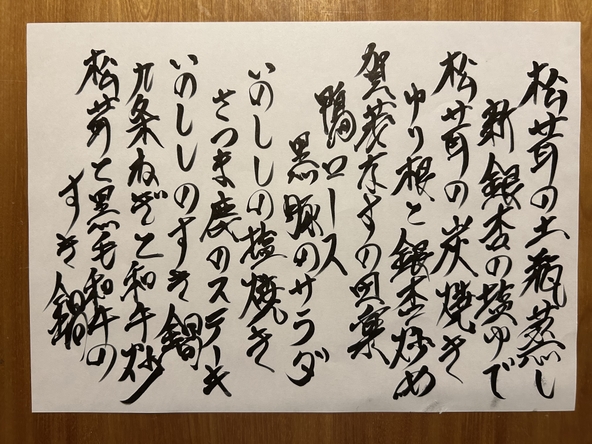 松茸の土瓶蒸し
新銀杏の塩ゆで
松茸の炭焼き
ゆり根と銀杏炒め
賀茂なすの田楽
鴨ロース
黒豚のサラダ
いのししの塩焼き
さつま鹿のステーキ
いのししのすき鍋
九条ねぎと和牛炒
松茸と黒毛和牛の
すき鍋